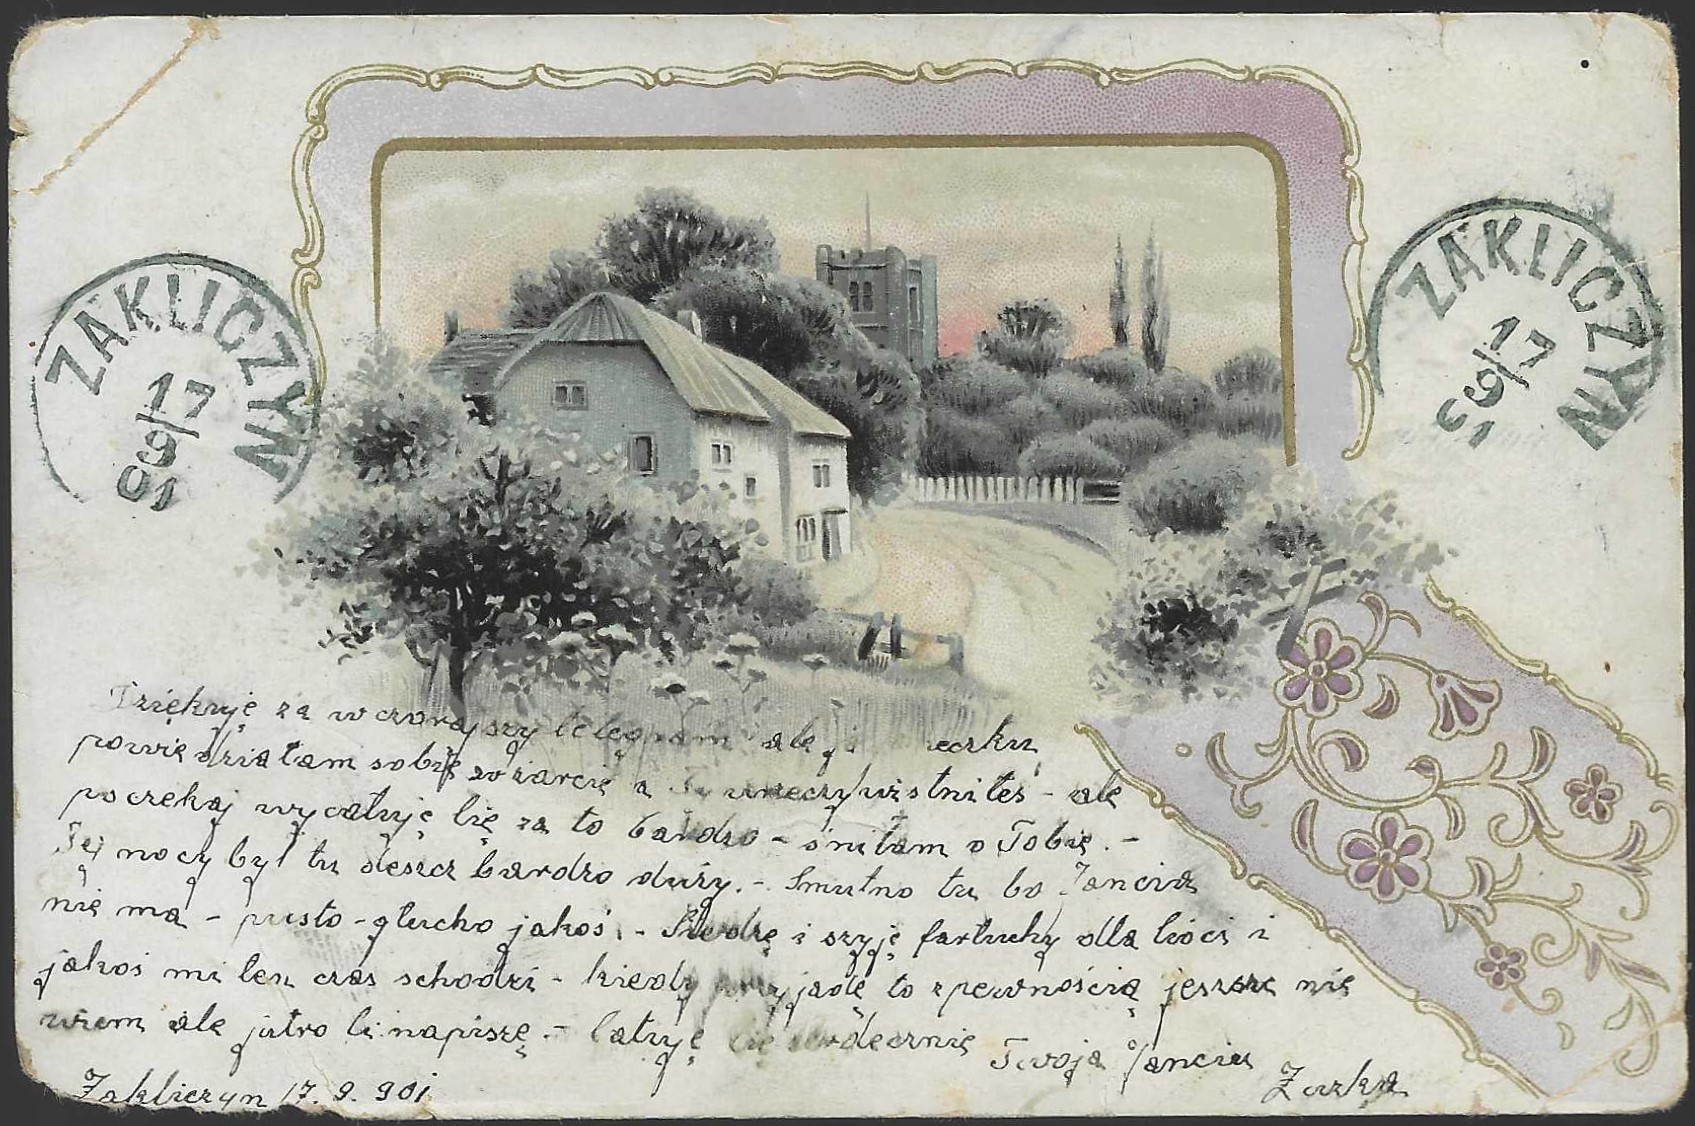 ZAKLICZYN
17
9
01
ZAKLICZYN
17
9
01
Dziękuję za wczorajszy telegram ale
powiedziałam sobie w żarcie a Ty urzeczywistniłeś - ale
poczekaj wycałuję Cię za to bardzo - śniłam o Tobie. -
Tej nocy był tu deszcz bardzo duży. - Smutno tu bo Jancia
nie ma - pusto - głucho jakoś. - Siedzę i szyję fartuchy dla Cioci i
jakoś mi ten czas schodzi - kiedy przyjadę to z pewnością jeszcze nie
wiem ale jutro Ci napiszę. - Całuję Cię serdecznie Twoja Janciu
Zakliczyn 17. 9. 901 Zuzka